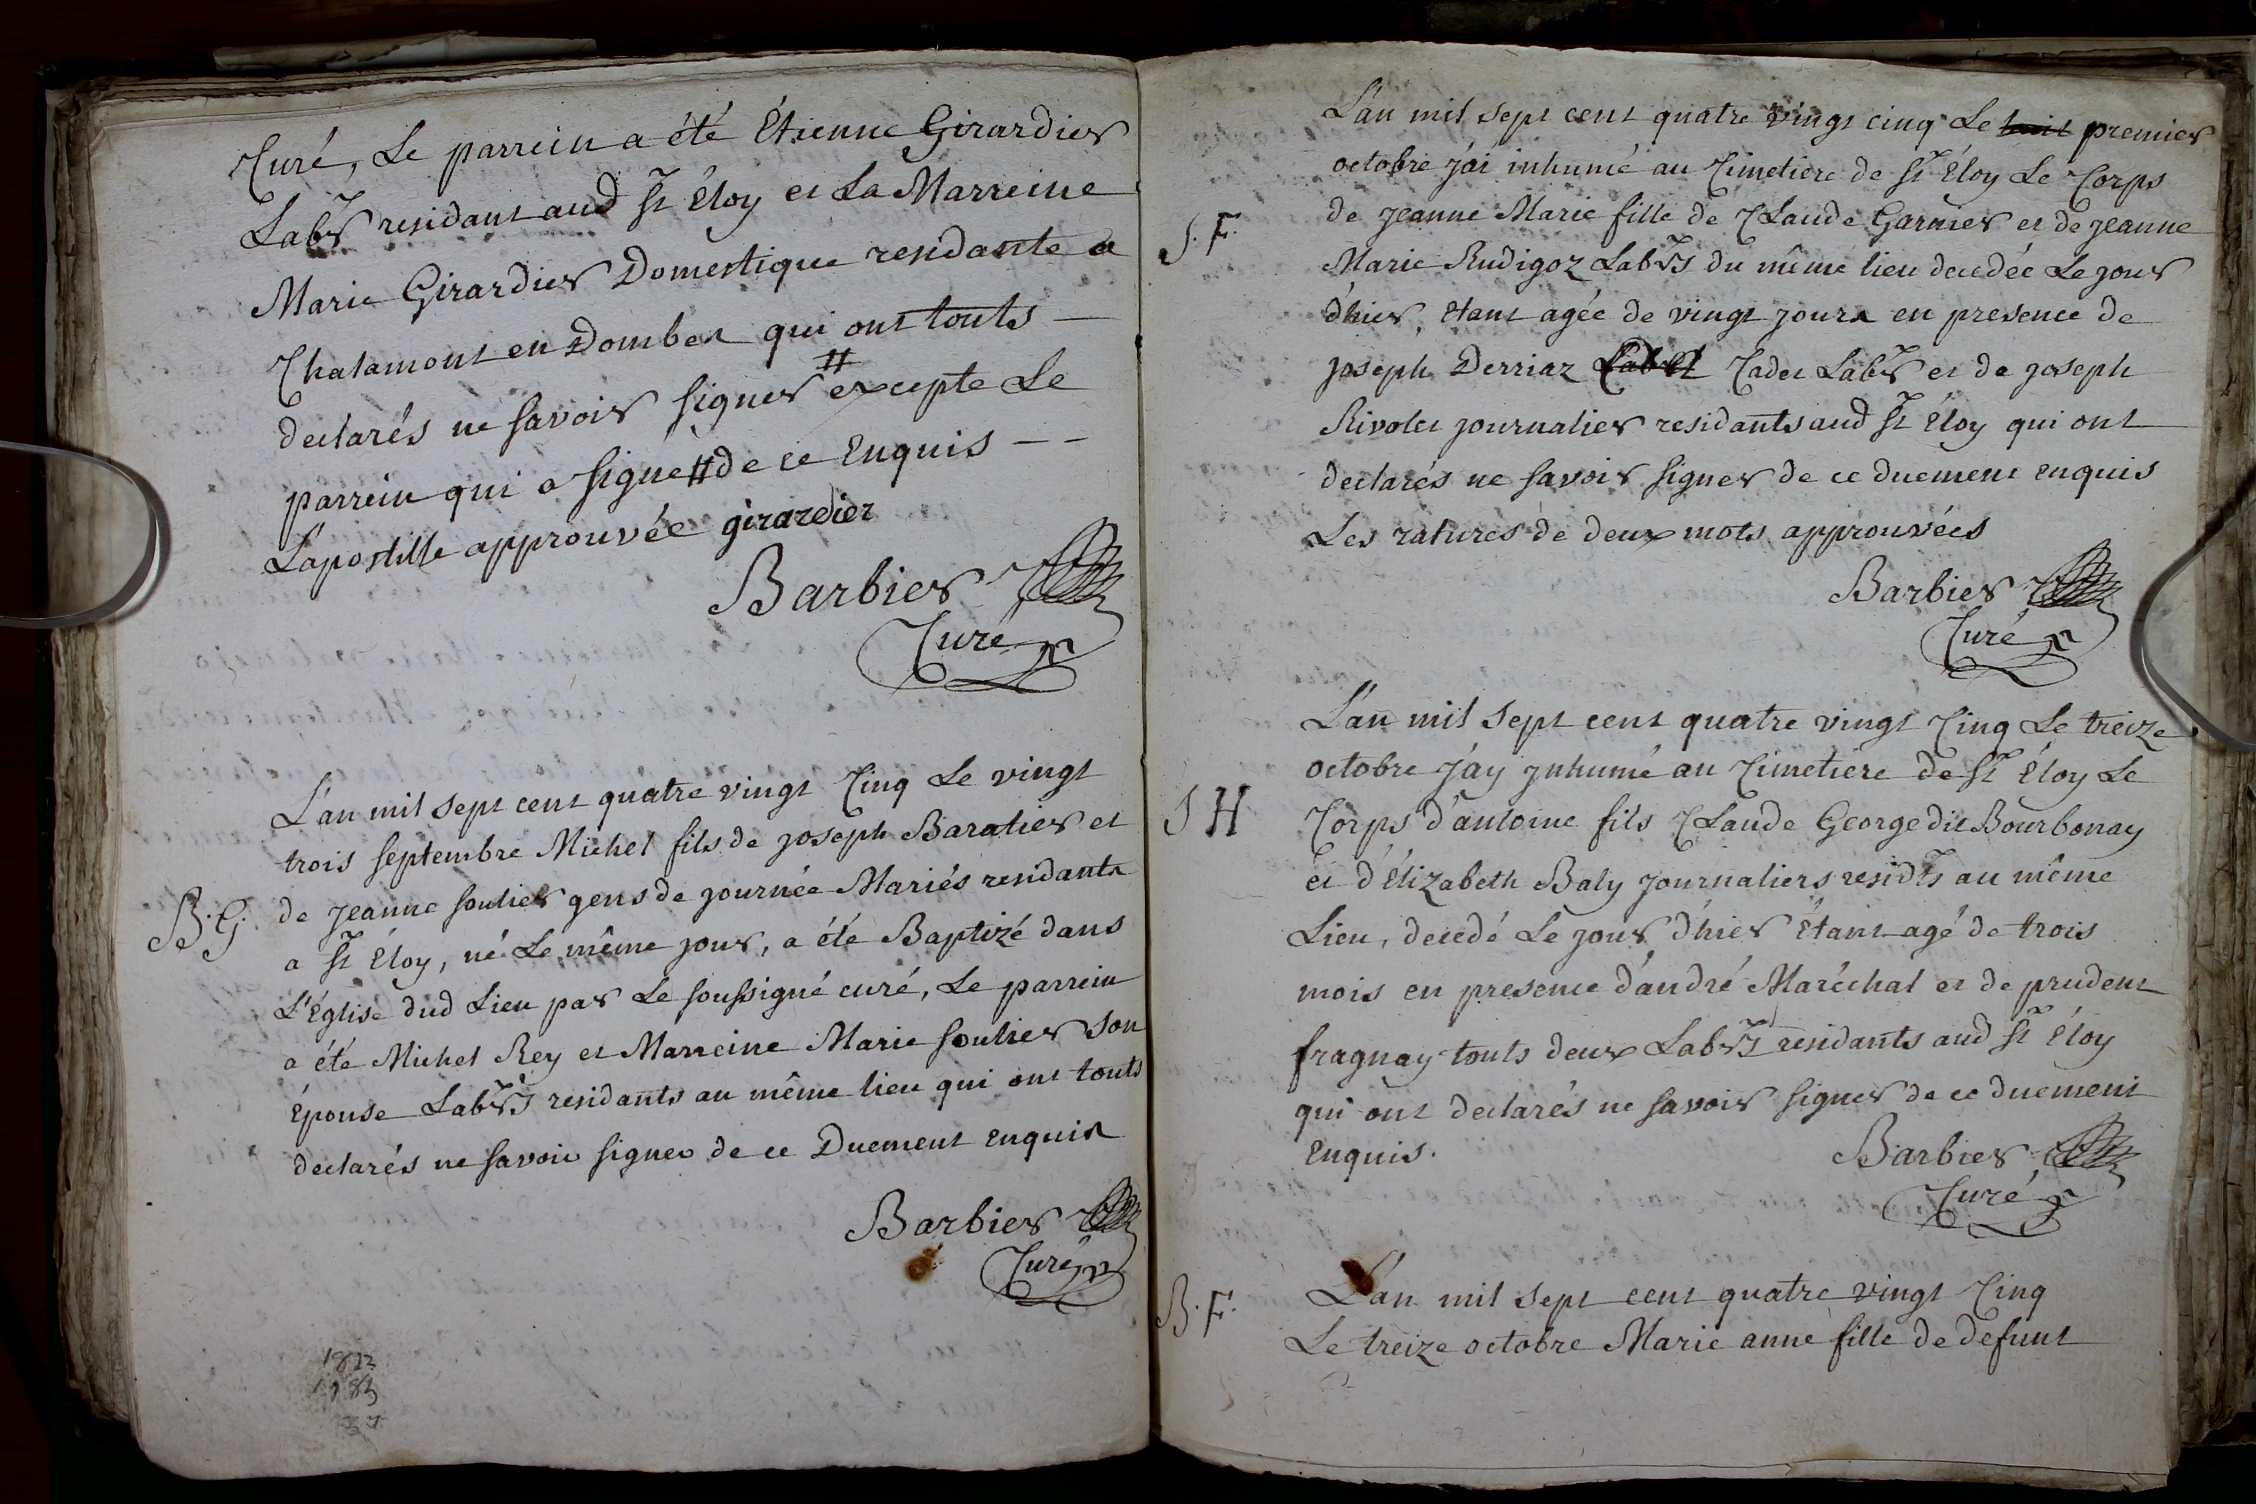 Curé, Le parrein a été Étienne Girardier
Labr residant aud St Éloy et La Marreine
Marie Girardier Domestique residante a
Chalamont en Dombes qui ont touts —
declarés ne savoir signer # excepte Le
parrein qui a signé # de ce Enquis — —
L'apostille approuvée girardier
Barbier
Curé
L'an mil sept cent quatre vingt Cinq Le vingt
trois septembre Michel fils de joseph Baratier et
B. G. de jeanne soulier gens de journée Mariés residants
a St Éloy, né Le même jour, a été Baptizé dans
L'Église dud Lieu par Le soussigné curé, Le parrein
a été Michel Rey et Marreine Marie soulier son
Épouse Labrs residants au même lieu qui ont touts
declarés ne savoir signer de ce Duement enquis
Barbier
Curé
1822
1785
37
L'an mil sept cent quatre vingt cinq Le huit premier
octobre j'ai inhumé au Cimetiere de St Éloy Le Corps
S. F. de jeanne Marie fille de Claude Garnier et de jeanne
Marie Rudigoz Labrs du même lieu decedée Le jour
d'hier, étant agée de vingt jours en presence de
joseph Derriaz Labr Cadet Labr et de joseph
Rivolet journalier residants aud St Éloy qui ont
declarés ne savoir signer de ce duement enquis
Les ratures de deux mots approuvées
Barbier
Curé
L'an mil sept cent quatre vingt Cinq Le treize
octobre j'ay jnhumé au Cimetiere de St Éloy Le
S H Corps d'antoine fils Claude George dit Bourbonay
et d'Élizabeth Baly journaliers residts au même
Lieu, decedé Le jour d'hier Étant agé de trois
mois en presence d'andré Maréchal et de prudent
fragnay touts deux Labrs residants aud St Éloy
qui ont declarés ne savoir signer de ce duement
Enquis.
Barbier
Curé
B. F. L'an mil sept cent quatre vingt Cinq
Le treize octobre Marie anne fille de defunt